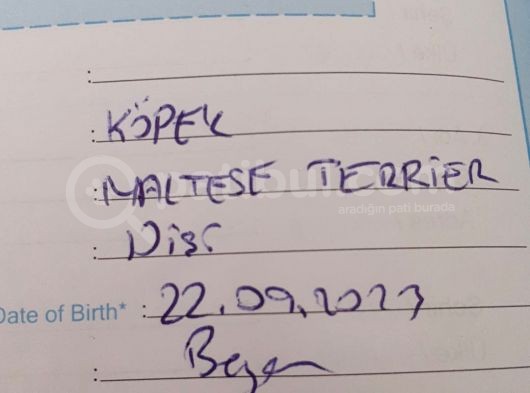 :
: KÖPEK
: MALTESE TERRIER
aradığın pati burada
: Dişi
Date of Birth* : 22.09.2023
: Beyaz